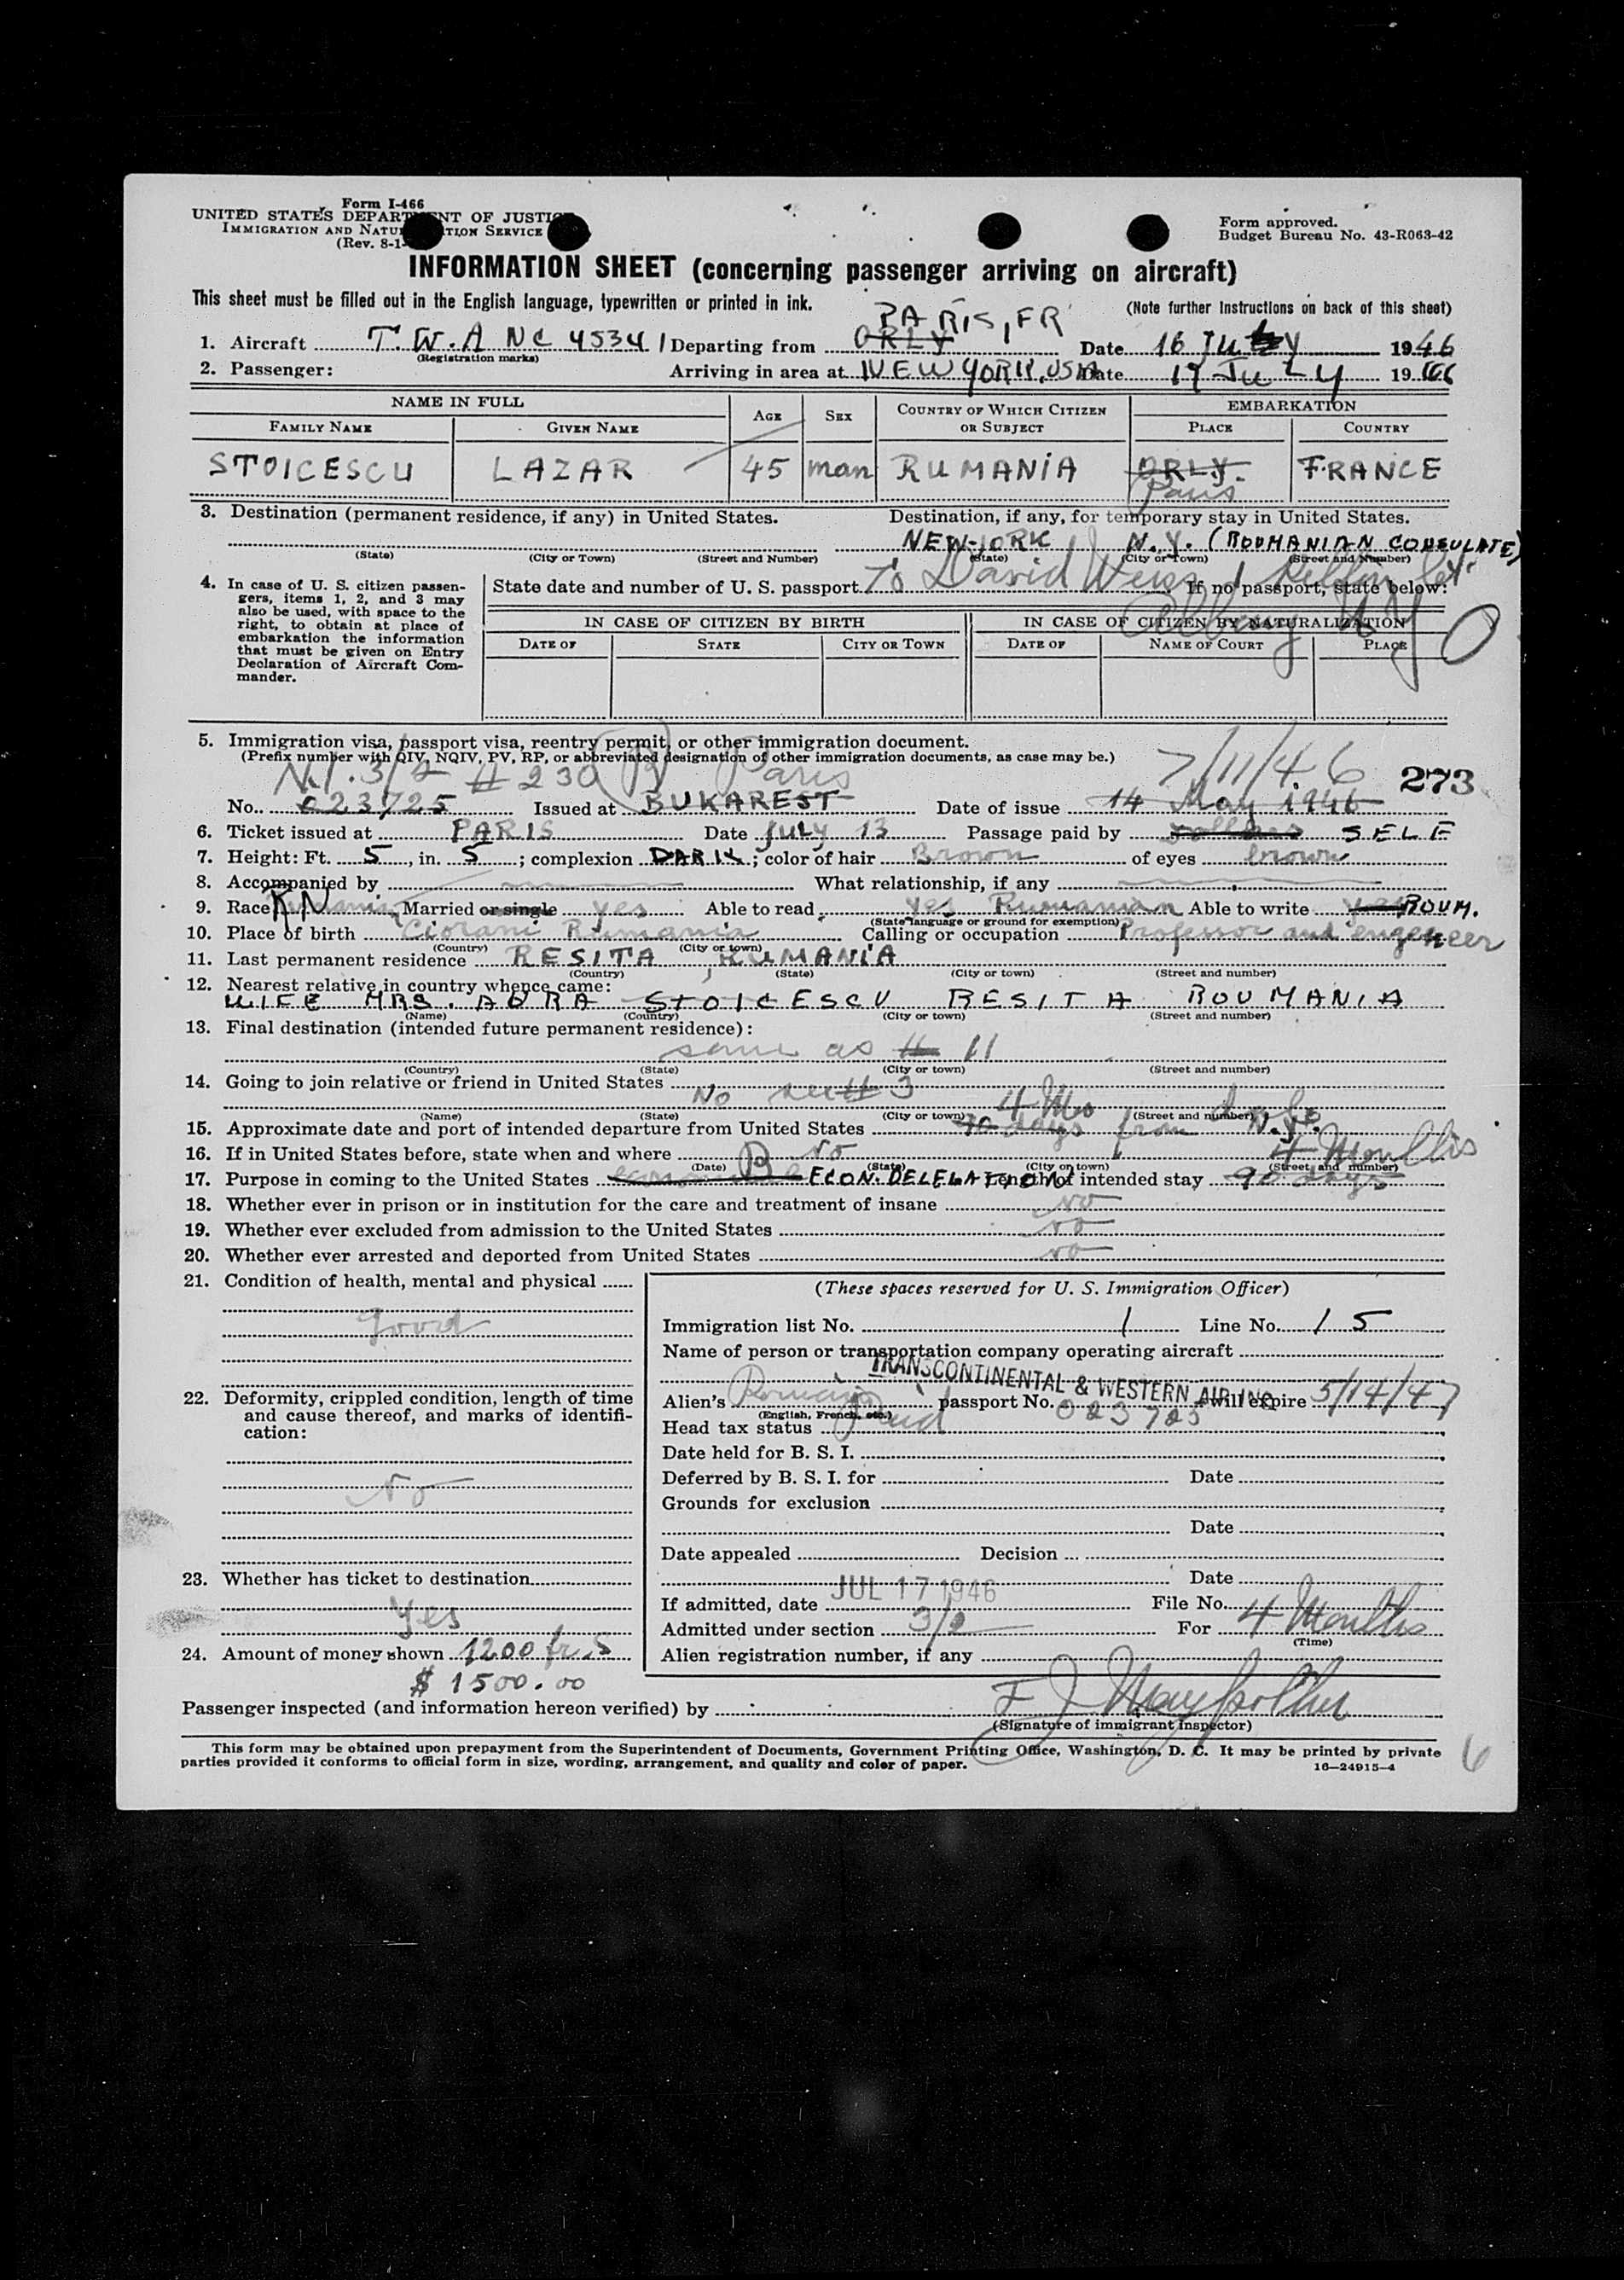 Form I-466
UNITED STATES DEPARTMENT OF JUSTICE
IMMIGRATION AND NATURALIZATION SERVICE
(Rev. 8-1-
Form approved.
Budget Bureau No. 43-R063-42
INFORMATION SHEET (concerning passenger arriving on aircraft)
This sheet must be filled out in the English language, typewritten or printed in ink.
(Note further instructions on back of this sheet)
PARIS, FR
1. Aircraft T.W.A NC 45341 Departing from ORLY Date 16 JULY 1946
(Registration marks)
2. Passenger: Arriving in area at NEW YORK, USA Date 17 JULY 1946
NAME IN FULL AGE SEX COUNTRY OF WHICH CITIZEN OR SUBJECT EMBARKATION
FAMILY NAME GIVEN NAME PLACE COUNTRY
STOICESCU LAZAR 45 man RUMANIA ORLY. FRANCE
Paris
3. Destination (permanent residence, if any) in United States. Destination, if any, for temporary stay in United States.
NEW-YORK N.Y. (ROUMANIAN CONSULATE)
(State) (City or Town) (Street and Number) (State) (City or Town) (Street and Number)
4. In case of U. S. citizen passengers, items 1, 2, and 3 may also be used, with space to the right, to obtain at place of embarkation the information that must be given on Entry Declaration of Aircraft Commander.
State date and number of U. S. passport To David Weiss If no passport, state below:
Albany N Y
IN CASE OF CITIZEN BY BIRTH IN CASE OF CITIZEN BY NATURALIZATION
DATE OF STATE CITY OR TOWN DATE OF NAME OF COURT PLACE
5. Immigration visa, passport visa, reentry permit, or other immigration document.
(Prefix number with QIV, NQIV, PV, RP, or abbreviated designation of other immigration documents, as case may be.)
3/2 # 230 (B) Paris 7/11/46 273
No. 023725 Issued at BUKAREST Date of issue 14 May 1946
6. Ticket issued at PARIS Date July 13 Passage paid by SELF
7. Height: Ft. 5, in. 5; complexion DARK; color of hair Brown of eyes brown
8. Accompanied by What relationship, if any
9. Race RN Married or single yes Able to read yes Rumanian Able to write yes ROUM.
(State language or ground for exemption)
10. Place of birth Ciorani Rumania Calling or occupation Professor and engeneer
(Country) (City or town)
11. Last permanent residence RESITA, RUMANIA
(Country) (State) (City or town) (Street and number)
12. Nearest relative in country whence came:
WIFE MRS. AURA STOICESCU RESITA ROUMANIA
(Name) (Country) (City or town) (Street and number)
13. Final destination (intended future permanent residence):
same as # 11
(Country) (State) (City or town) (Street and number)
14. Going to join relative or friend in United States No see # 3
(Name) (State) (City or town) (Street and number)
4 Mos
15. Approximate date and port of intended departure from United States 90 days from N.Y.
16. If in United States before, state when and where No
(Date) (State) (City or town) (Street and number)
4 Months
17. Purpose in coming to the United States B ECON. DELEGATION Length of intended stay 90 days
18. Whether ever in prison or in institution for the care and treatment of insane no
19. Whether ever excluded from admission to the United States no
20. Whether ever arrested and deported from United States no
21. Condition of health, mental and physical
good
22. Deformity, crippled condition, length of time and cause thereof, and marks of identification:
No
23. Whether has ticket to destination
Yes
24. Amount of money shown 1200 fr.s
$ 1500.00
(These spaces reserved for U. S. Immigration Officer)
Immigration list No. 1 Line No. 15
Name of person or transportation company operating aircraft
TRANSCONTINENTAL & WESTERN AIR INC.
Alien's passport No. 023725 will expire 5/14/47
(English, French, etc.)
Head tax status Paid
Date held for B. S. I.
Deferred by B. S. I. for Date
Grounds for exclusion
Date
Date appealed Decision
Date
If admitted, date JUL 17 1946 File No.
Admitted under section 3/2 For 4 Months
(Time)
Alien registration number, if any
Passenger inspected (and information hereon verified) by
(Signature of immigrant inspector)
This form may be obtained upon prepayment from the Superintendent of Documents, Government Printing Office, Washington, D. C. It may be printed by private
parties provided it conforms to official form in size, wording, arrangement, and quality and color of paper.
16—24915-4
6